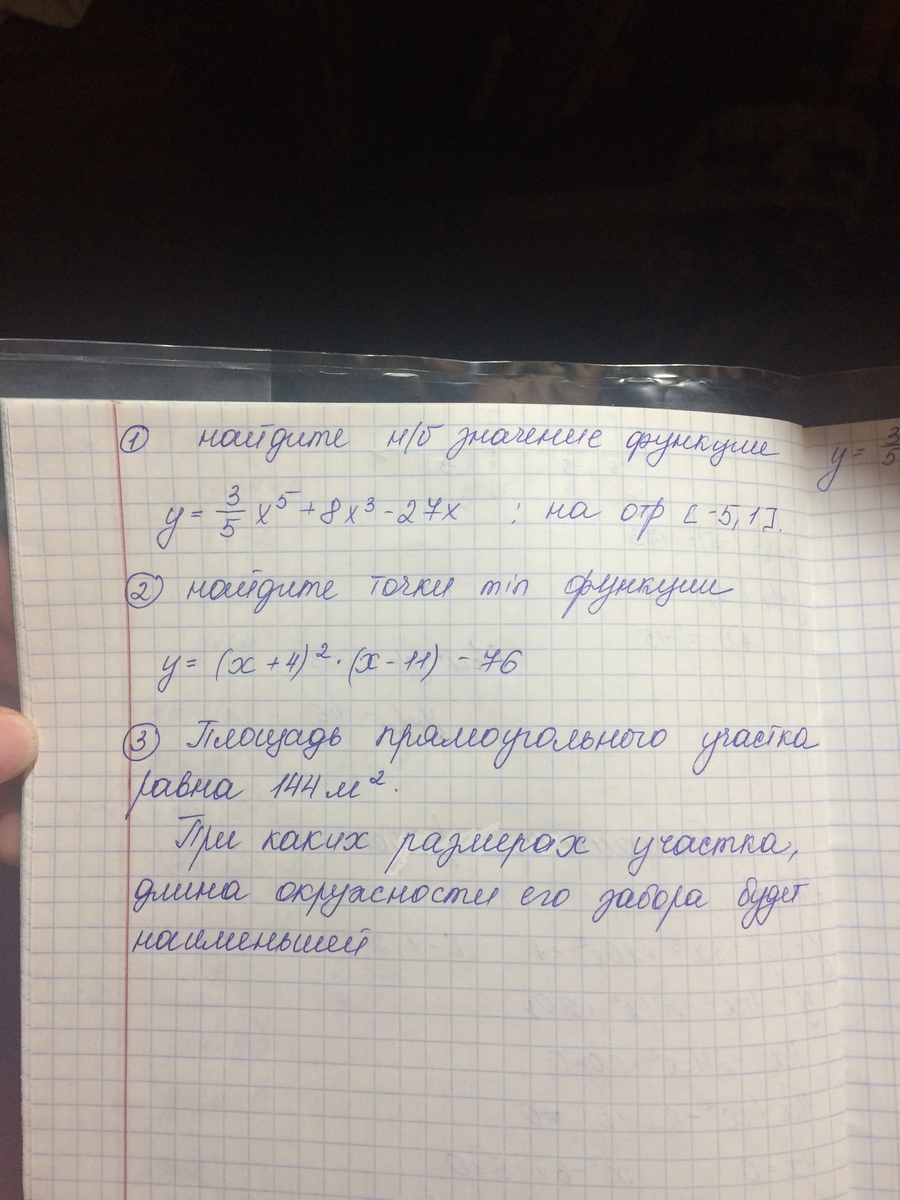 ① найдите н/б значение функции
y = 3/5 x⁵ + 8x³ - 27x ; на отр [-5,1].
② найдите точки min функции
y = (x + 4)² · (x - 11) - 76
③ Площадь прямоугольного участка
равна 144 м².
При каких размерах участка,
длина окружности его забора будет
наименьшей
y = 3/5